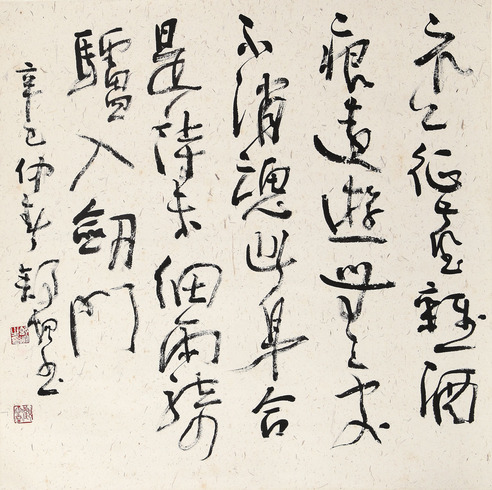 衣上征塵雜酒
痕遠遊無處
不消魂此身合
是詩未細雨騎
驢入劍門
辛巳仲秋 書